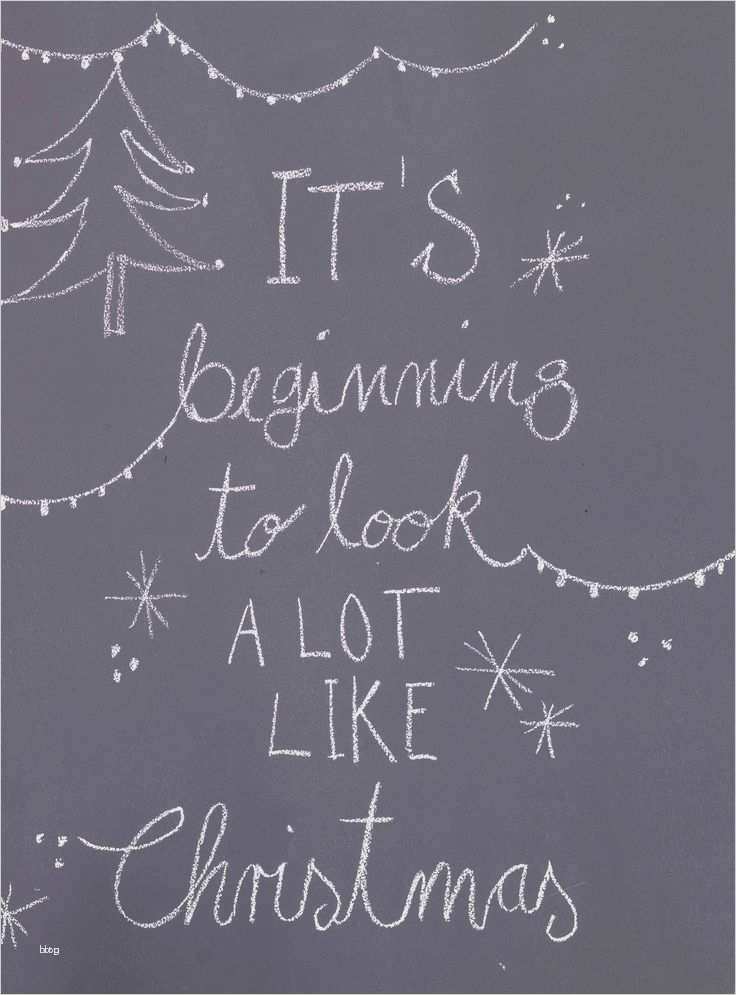 IT'S
beginning
to look
A LOT
LIKE
Christmas